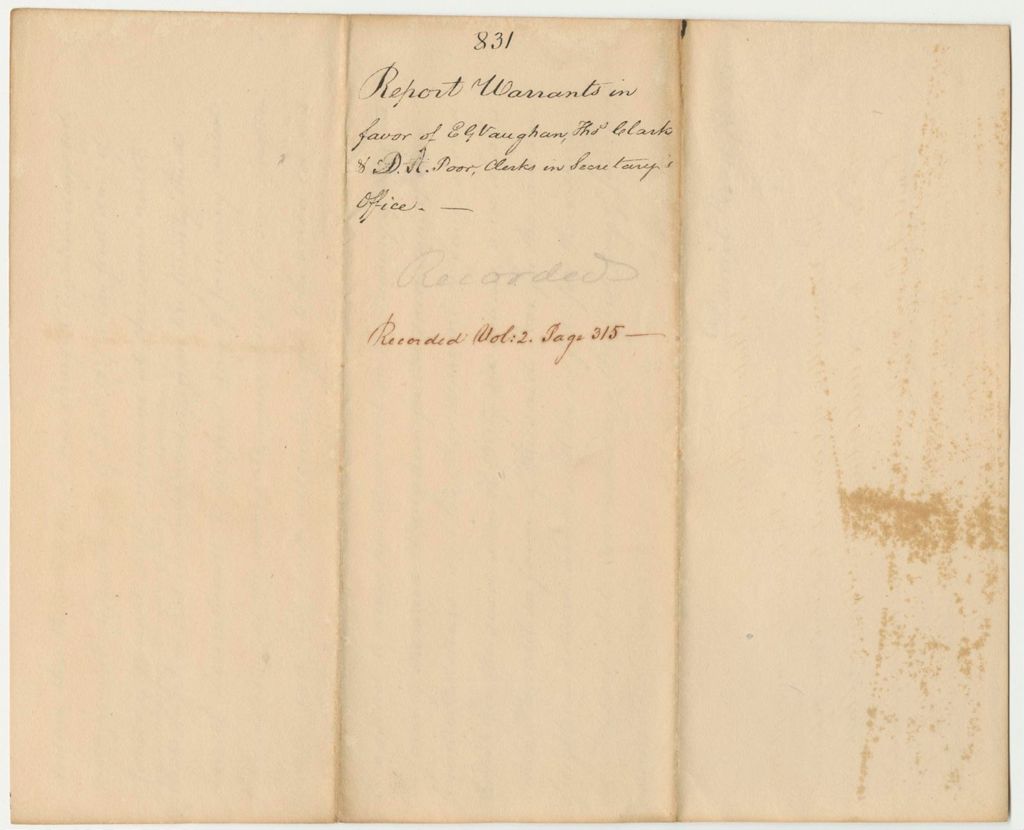 831
Report Warrants in
favor of E G Vaughan, Thos Clark
& D. A. Poor, Clerks in Secretary's
Office. —
Recorded
Recorded Vol: 2. Page 315 —